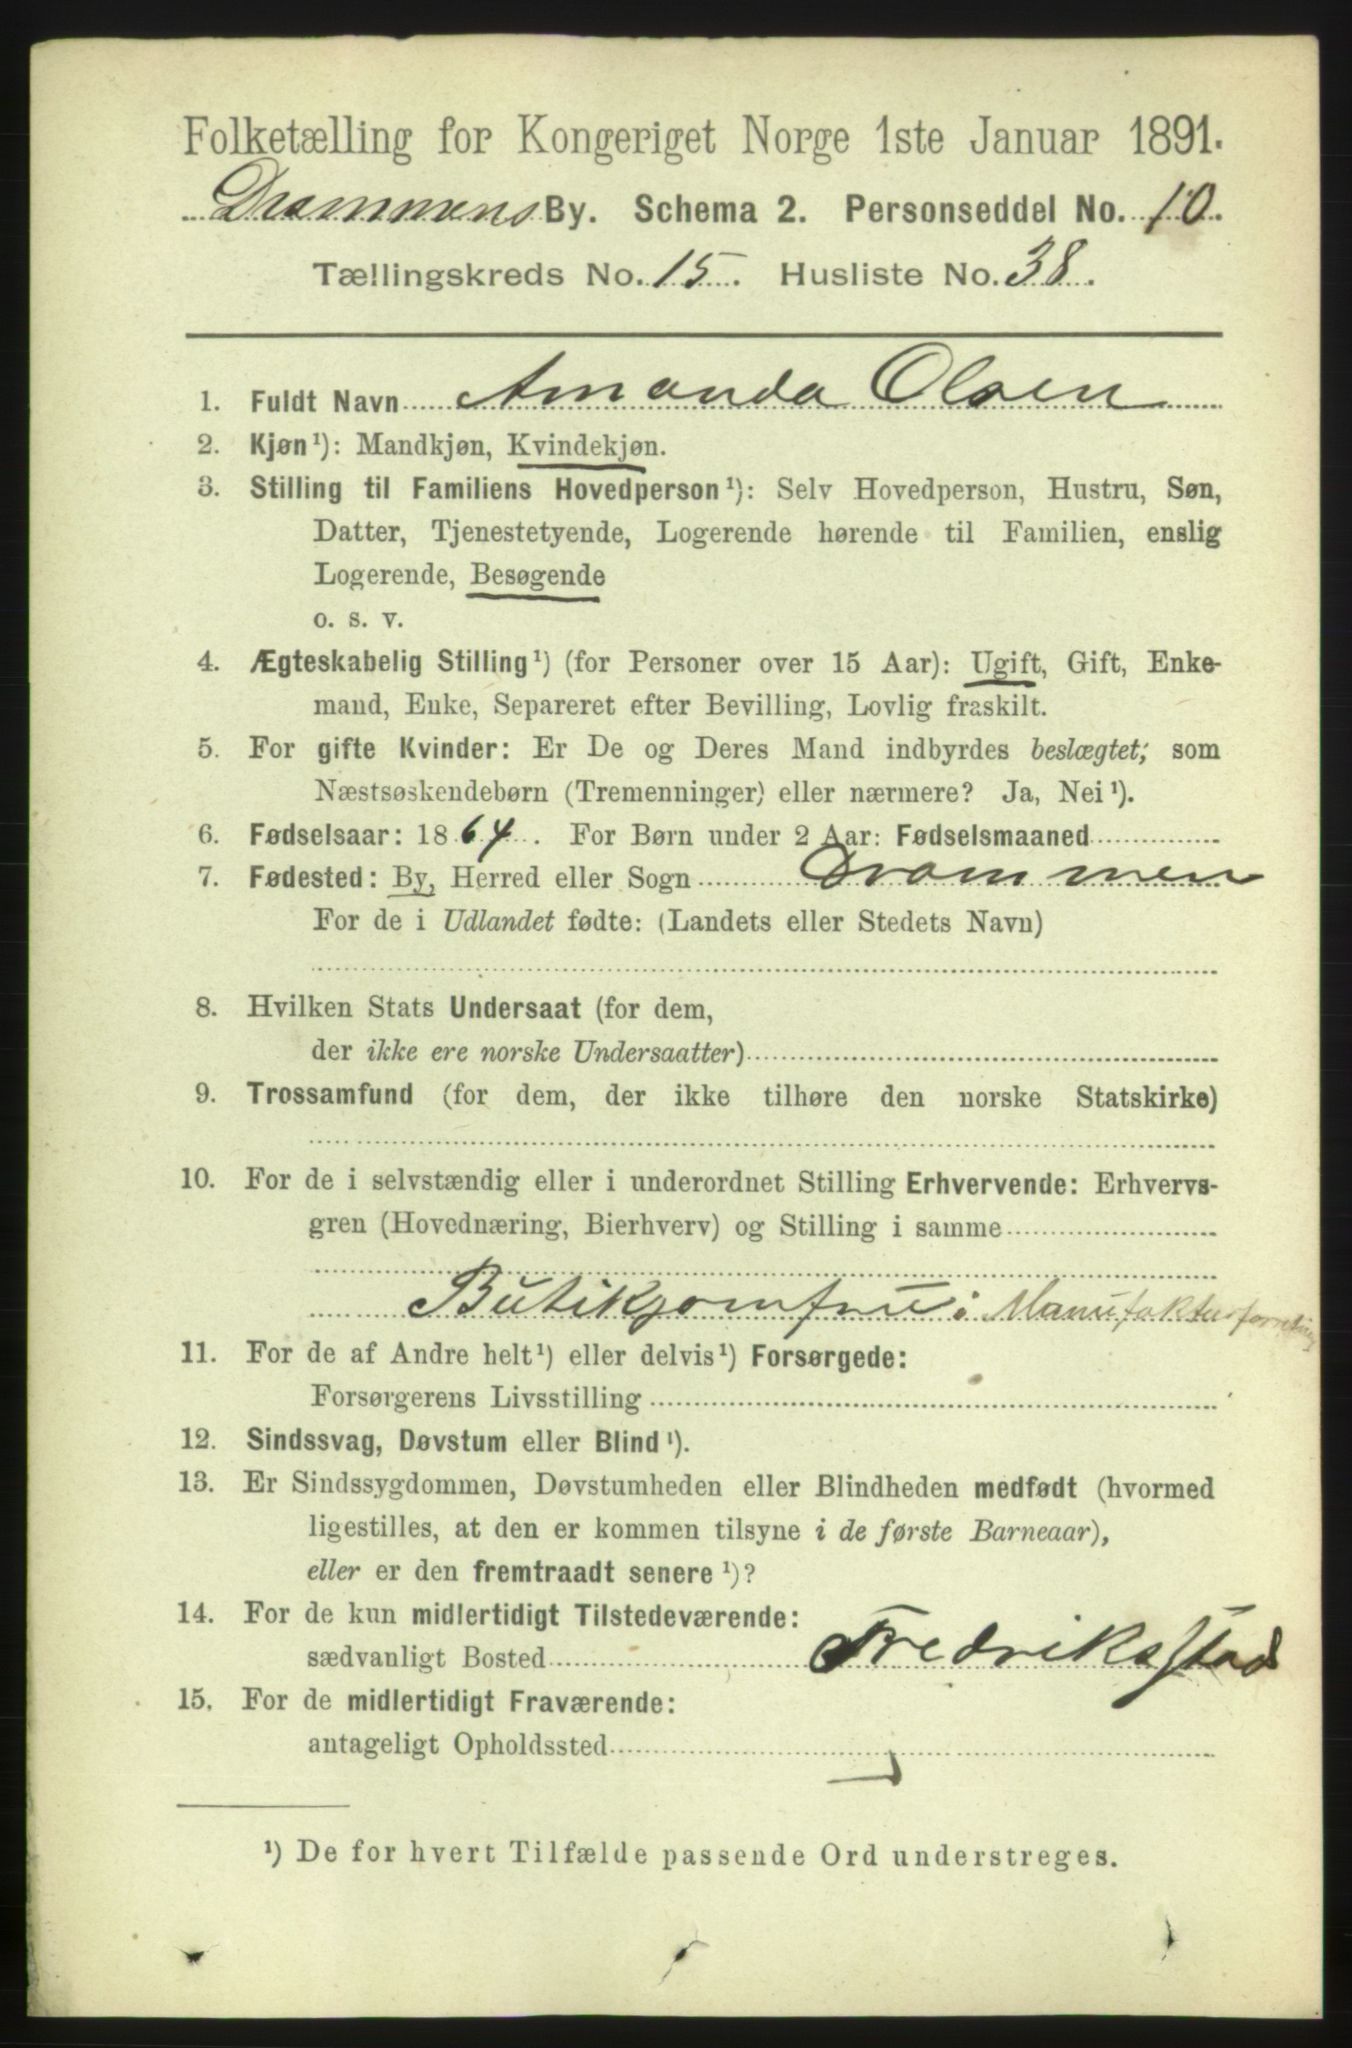 Folketælling for Kongeriget Norge 1ste Januar 1891.
Drammens By. Schema 2. Personseddel No. 10.
Tællingskreds No. 15. Husliste No. 38.
1. Fuldt Navn Amanda Olsen
2. Kjøn¹): Mandkjøn, Kvindekjøn.
3. Stilling til Familiens Hovedperson¹): Selv Hovedperson, Hustru, Søn,
Datter, Tjenestetyende, Logerende hørende til Familien, enslig
Logerende, Besøgende
o. s. v.
4. Ægteskabelig Stilling¹) (for Personer over 15 Aar): Ugift, Gift, Enke-
mand, Enke, Separeret efter Bevilling, Lovlig fraskilt.
5. For gifte Kvinder: Er De og Deres Mand indbyrdes beslægtet; som
Næstsøskendebørn (Tremenninger) eller nærmere? Ja, Nei¹).
6. Fødselsaar: 1864. For Børn under 2 Aar: Fødselsmaaned
7. Fødested: By, Herred eller Sogn Drammen
For de i Udlandet fødte: (Landets eller Stedets Navn)
8. Hvilken Stats Undersaat (for dem,
der ikke ere norske Undersaatter)
9. Trossamfund (for dem, der ikke tilhøre den norske Statskirke)
10. For de i selvstændig eller i underordnet Stilling Erhvervende: Erhvervs-
gren (Hovednæring, Bierhverv) og Stilling i samme
Butikjomfru i Manufakturforretning
11. For de af Andre helt¹) eller delvis¹) Forsørgede:
Forsørgerens Livsstilling
12. Sindssvag, Døvstum eller Blind¹).
13. Er Sindssygdommen, Døvstumheden eller Blindheden medfødt (hvormed
ligestilles, at den er kommen tilsyne i de første Barneaar),
eller er den fremtraadt senere¹)?
14. For de kun midlertidigt Tilstedeværende:
sædvanligt Bosted Fredriksstad
15. For de midlertidigt Fraværende:
antageligt Opholdssted
¹) De for hvert Tilfælde passende Ord understreges.